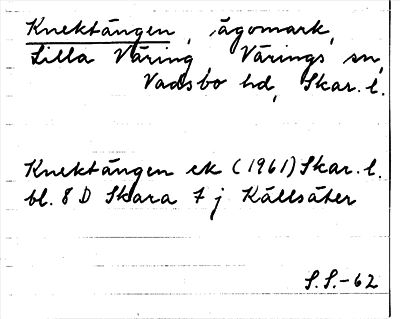 Knektängen, ägomark,
Lilla Väring, Värings sn,
Vadsbo hd, Skar. l.
Knektängen ek (1961) Skar. l.
bl. 8 D Skara 7 j Källsäter
S.S.-62